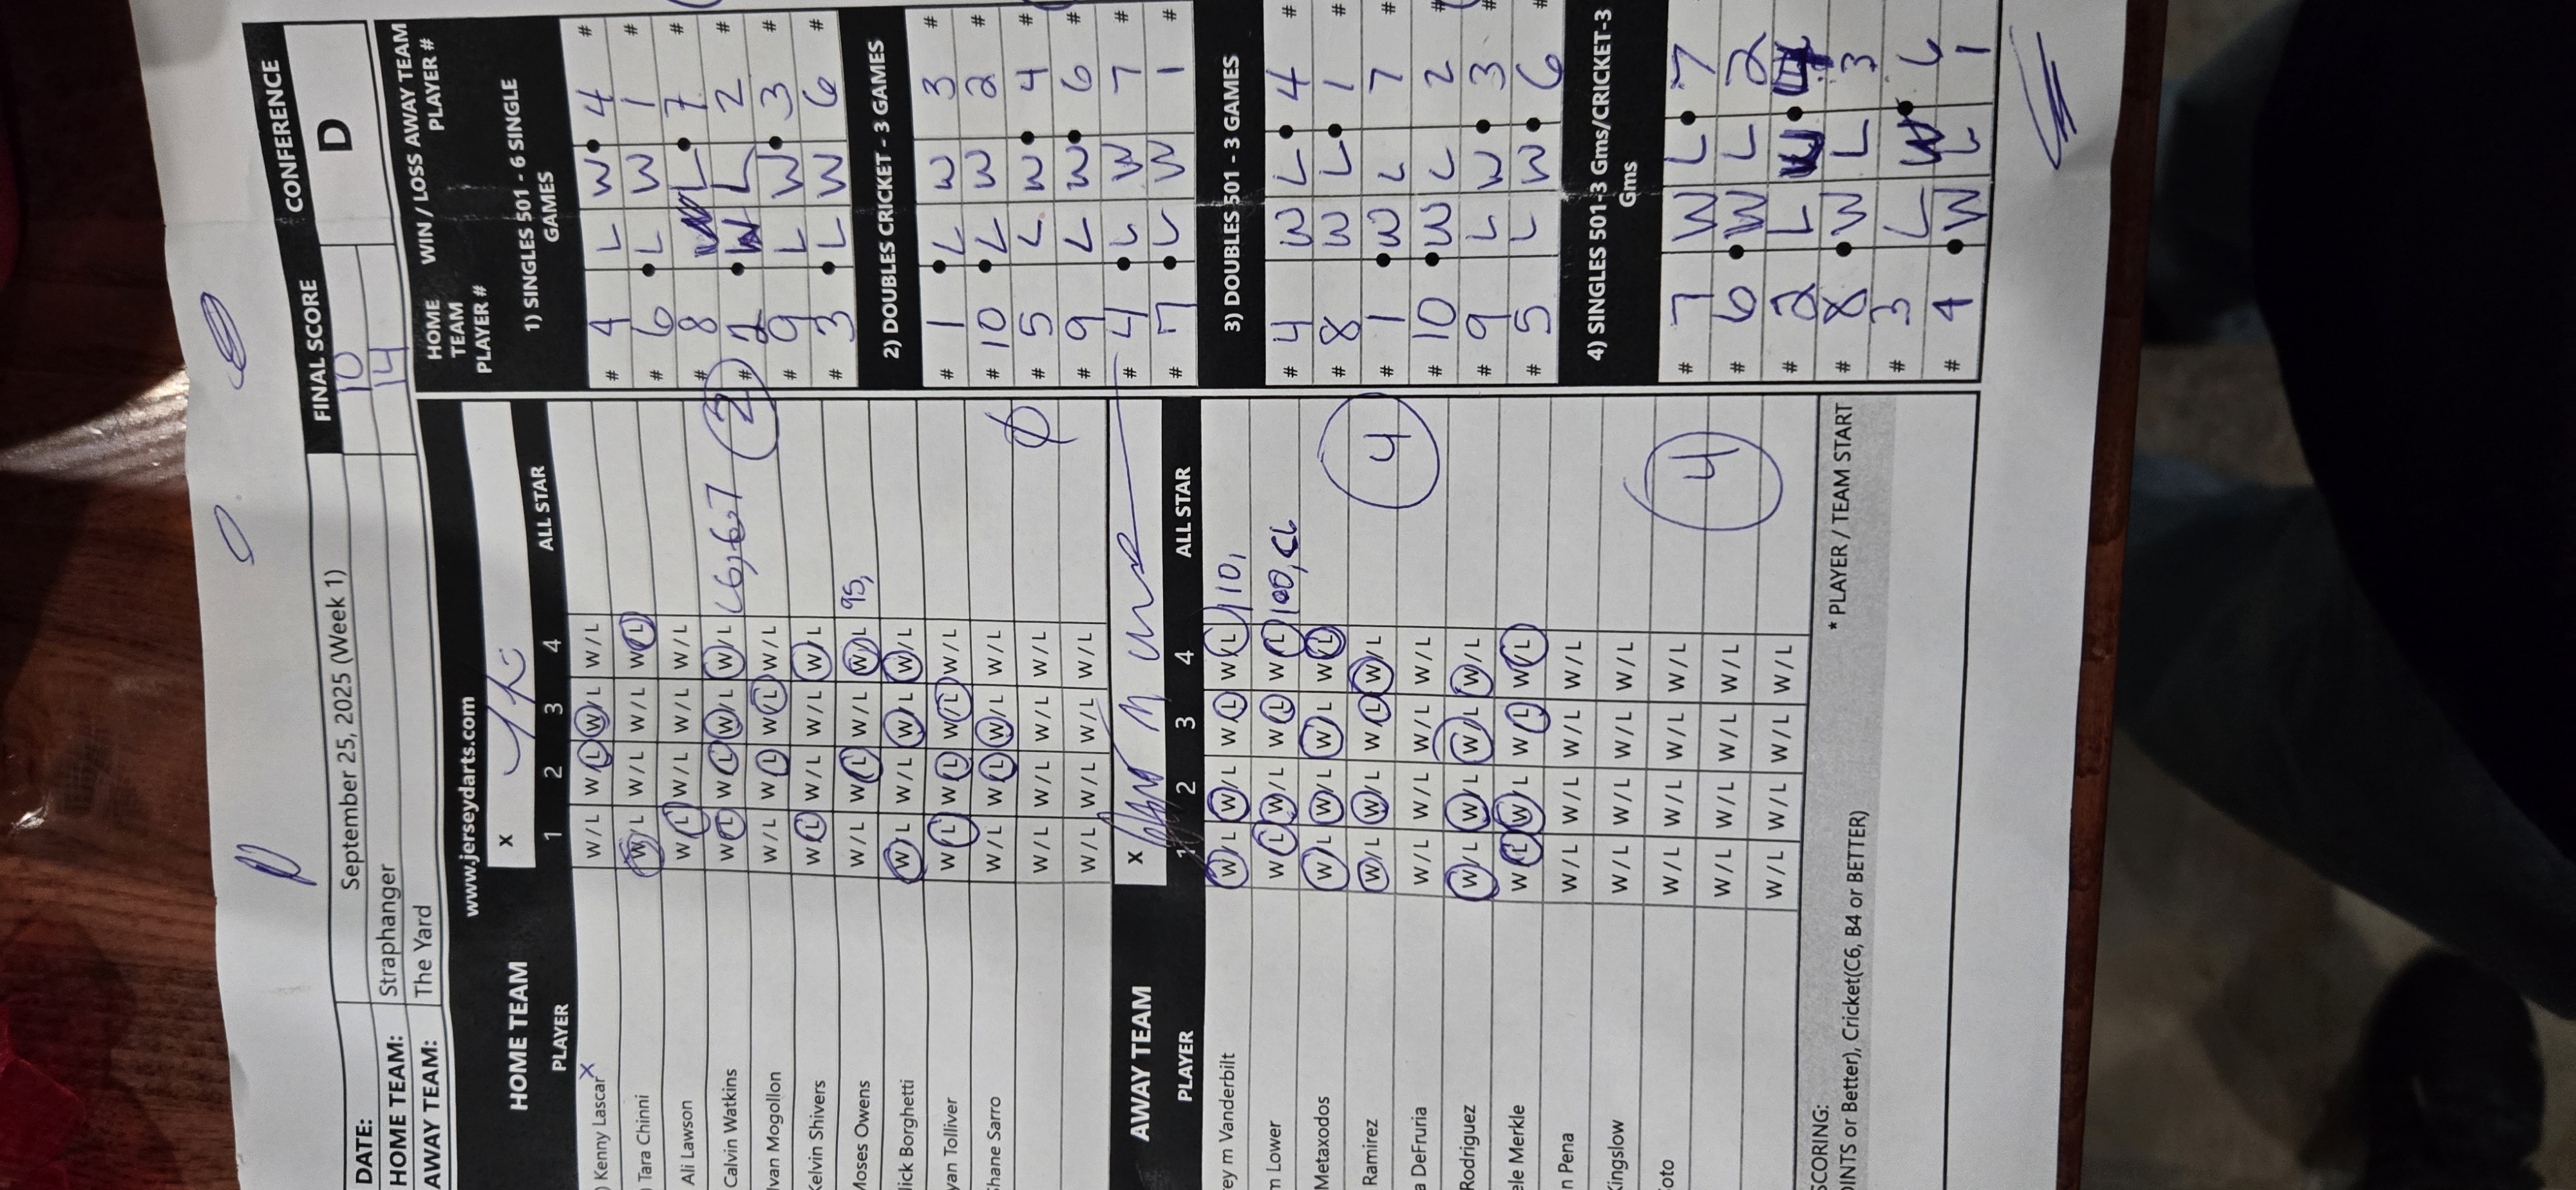 FINAL SCORE CONFERENCE
DATE: September 25, 2025 (Week 1) 10 D
HOME TEAM: Straphanger 14
AWAY TEAM: The Yard
www.jerseydarts.com
HOME TEAM x
PLAYER 1 2 3 4 ALL STAR
) Kenny Lascar x W/L W/L W/L W/L
) Tara Chinni W/L W/L W/L W/L
Ali Lawson W/L W/L W/L W/L
Calvin Watkins W/L W/L W/L W/L C6,6,7 2
Ivan Mogollon W/L W/L W/L W/L
Kelvin Shivers W/L W/L W/L W/L
Moses Owens W/L W/L W/L W/L 95,
lick Borghetti W/L W/L W/L W/L
yan Tolliver W/L W/L W/L W/L
hane Sarro W/L W/L W/L W/L
W/L W/L W/L W/L
W/L W/L W/L W/L
AWAY TEAM x
PLAYER 1 2 3 4 ALL STAR
ey m Vanderbilt W/L W/L W/L W/L 110,
m Lower W/L W/L W/L W/L 100, C6
Metaxodos W/L W/L W/L W/L
Ramirez W/L W/L W/L W/L 4
a DeFruria W/L W/L W/L W/L
Rodriguez W/L W/L W/L W/L
ele Merkle W/L W/L W/L W/L
n Pena W/L W/L W/L W/L
Kingslow W/L W/L W/L W/L
oto W/L W/L W/L W/L 4
W/L W/L W/L W/L
W/L W/L W/L W/L
SCORING: * PLAYER / TEAM START
OINTS or Better), Cricket(C6, B4 or BETTER)
HOME TEAM PLAYER # WIN / LOSS AWAY TEAM PLAYER #
1) SINGLES 501 - 6 SINGLE GAMES
# 4 L W 4 #
# 6 L W 1 #
# 8 L 7 #
# L 2 #
# 9 L W 3 #
# 3 L W 6 #
2) DOUBLES CRICKET - 3 GAMES
# 1 L W 3 #
# 10 L W 2 #
# 5 L W 4 #
# 9 L W 6 #
# 4 L W 7 #
# 7 L W 1 #
3) DOUBLES 501 - 3 GAMES
# 4 W L 4 #
# 8 W L 1 #
# 1 W L 7 #
# 10 W L 2 #
# 9 L W 3 #
# 5 L W 6 #
4) SINGLES 501-3 Gms/CRICKET-3 Gms
# 7 W L 7
# 6 W L 2
# 2 L W 4
# 8 W L 3
# 3 L W 6
# 4 W L 1